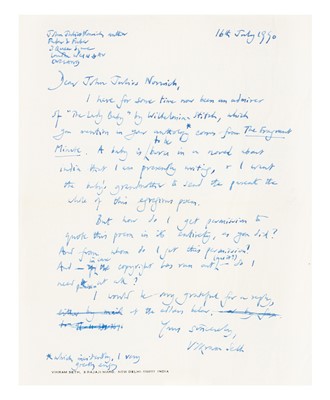 John Julius Norwich, author
Faber & Faber
3 Queen Square
London
16th July 1990
Dear John Julius Norwich,
I have for some time now been an admirer
of "The Lady Baby" by Wilhelmina Stitch, which
you mention in your anthology* comes from The Fragrant
Minute. A baby is to be born in a novel about
India that I am presently writing, & I want
the baby's grandmother to send the parents the
whole of this egregious poem.
But how do I get permission to
quote this poem in its entirety, as you did?
And from whom do I get this permission?
And in case the copyright has run out (has it?) – do I
need at all?
I would be very grateful for a reply,
either by mail at the address below,
Yours sincerely,
Vikram Seth
*which, incidentally, I very
greatly enjoy
VIKRAM SETH, 8 RAJAJI MARG, NEW DELHI 110011 INDIA